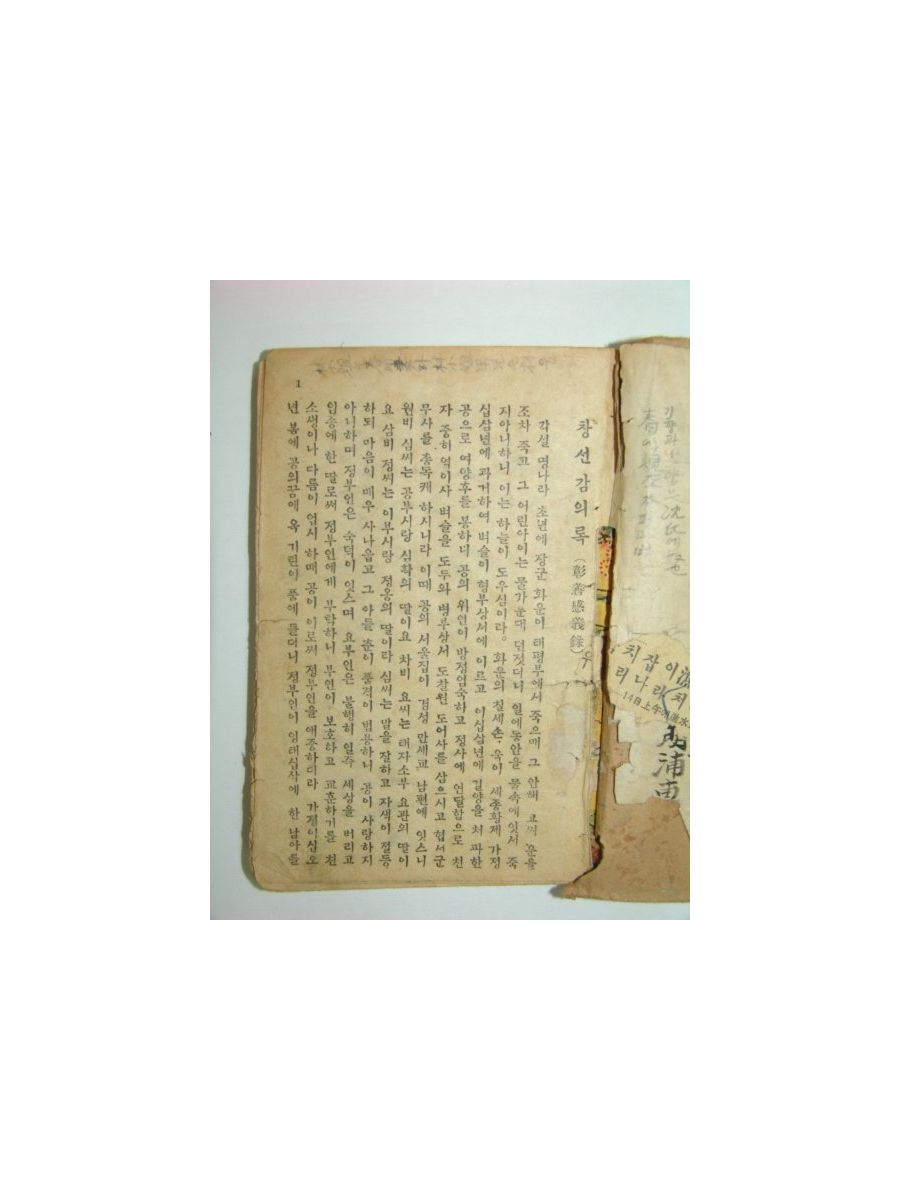 창선감의록(彰善感義錄)
각설 명나라 초년에 장군 화운이 태평부에서 죽으매 그 안해 고씨 운을
조차 죽고 그 어린아이는 물가운대 던젓더니 일헤동안을 물속에잇서 죽
지아니하니 이는 하늘이 도우심이라。화운의 칠세손 욱이 세종황제 가정
십삼년에 과거하여 벼슬이 형부상서에 이르고 이십삼년에 길양을 처 파한
공으로 여양후를 봉하니 공의 위인이 방정엄숙하고 정사에 연달함으로 천
자 중히 역이사 벼슬을 도두와 병부상서 도찰원 도어사를 삼으시고 협서군
무사를 총독케 하시니라 이때 공의 서울집이 경성 만세교 남편에 잇스니
원비 심씨는 공부시랑 심확의 딸이요 차비 요씨는 태자소부 요관의 딸이
요 삼비 정씨는 이부시랑 정옹의 딸이라 심씨는 말을 잘하고 자색이 절등
하되 마음이 매우 사나읍고 그 아들 춘이 풍격이 범용하니 공이 사랑하지
아니하며 정부인은 숙덕이 잇스며 요부인은 불행히 일즉 세상을 버리고
임종에 한 딸로써 정부인에게 부탁하니 부인이 보호하고 교훈하기를 친
소생이나 다름이 업시 하매 공이 이로써 정부인을 애중하더라 가정이십오
년 봄에 공의꿈에 옥 기린이 품에 들더니 정부인이 잉태십삭에 한 남아를
1
치잡이
리나라
14日上午
浦